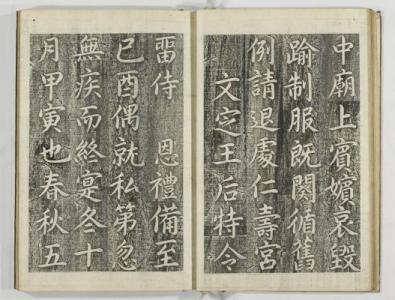 中廟上賓嬪哀毀
踰制服既闋循舊
例請退處仁壽宮
文定王后特令
留侍　恩禮備至
己酉偶就私第忽
無疾而終寔冬十
月甲寅也春秋五